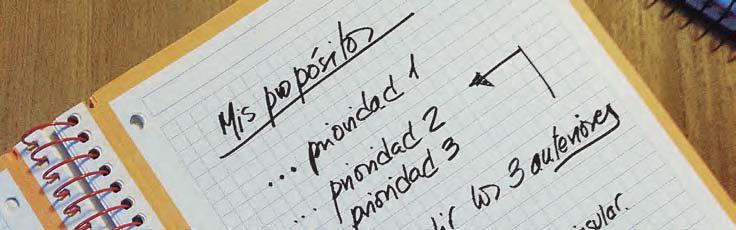 Mis propósitos
... prioridad 1
... prioridad 2
prioridad 3
los 3 anteriores